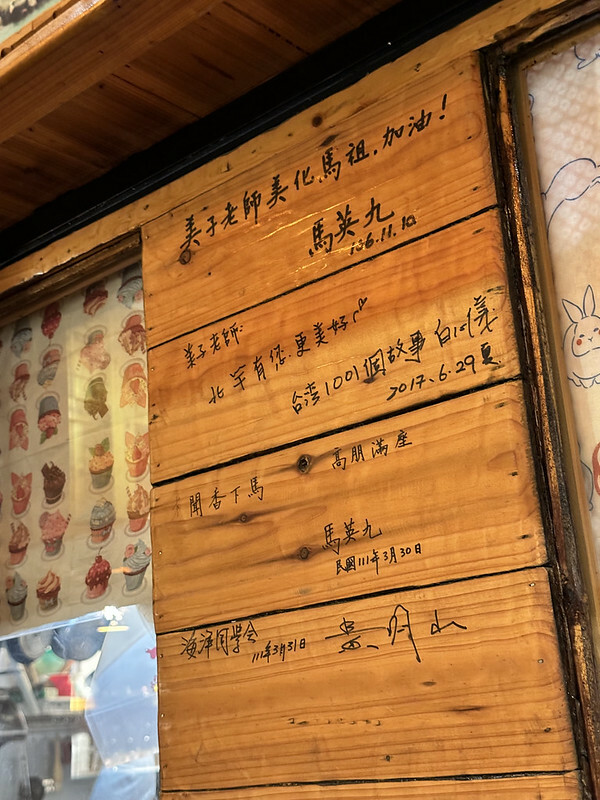 美子老師美化馬祖.加油！
馬英九
106.11.10
葉子老師:
北竿有您.更美好
台湾1001個故事 白心儀
2017.6.29夏
聞香下馬
高朋滿座
馬英九
民國111年3月30日
海洋同學会
111年3月31日